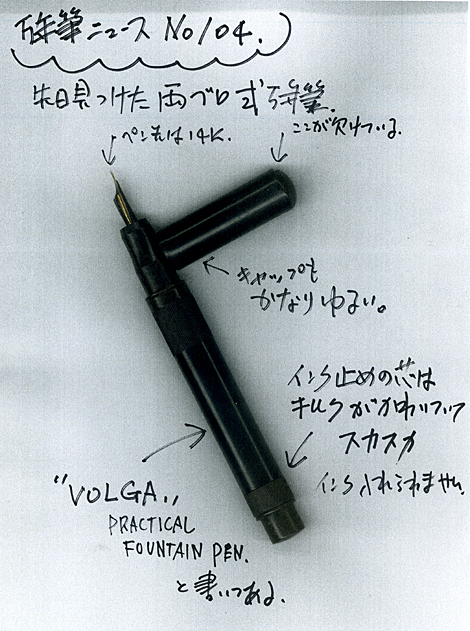 万年筆ニュース No104.
先日見つけた両ブロ式万年筆.
ペン先は14K.
ここが欠けている.
キャップも
かなりゆるい。
インク止めの芯は
キルクがかわいて
スカスカ
インク入れられません.
"VOLGA.,,
PRACTICAL
FOUNTAIN PEN.
と書いてある.